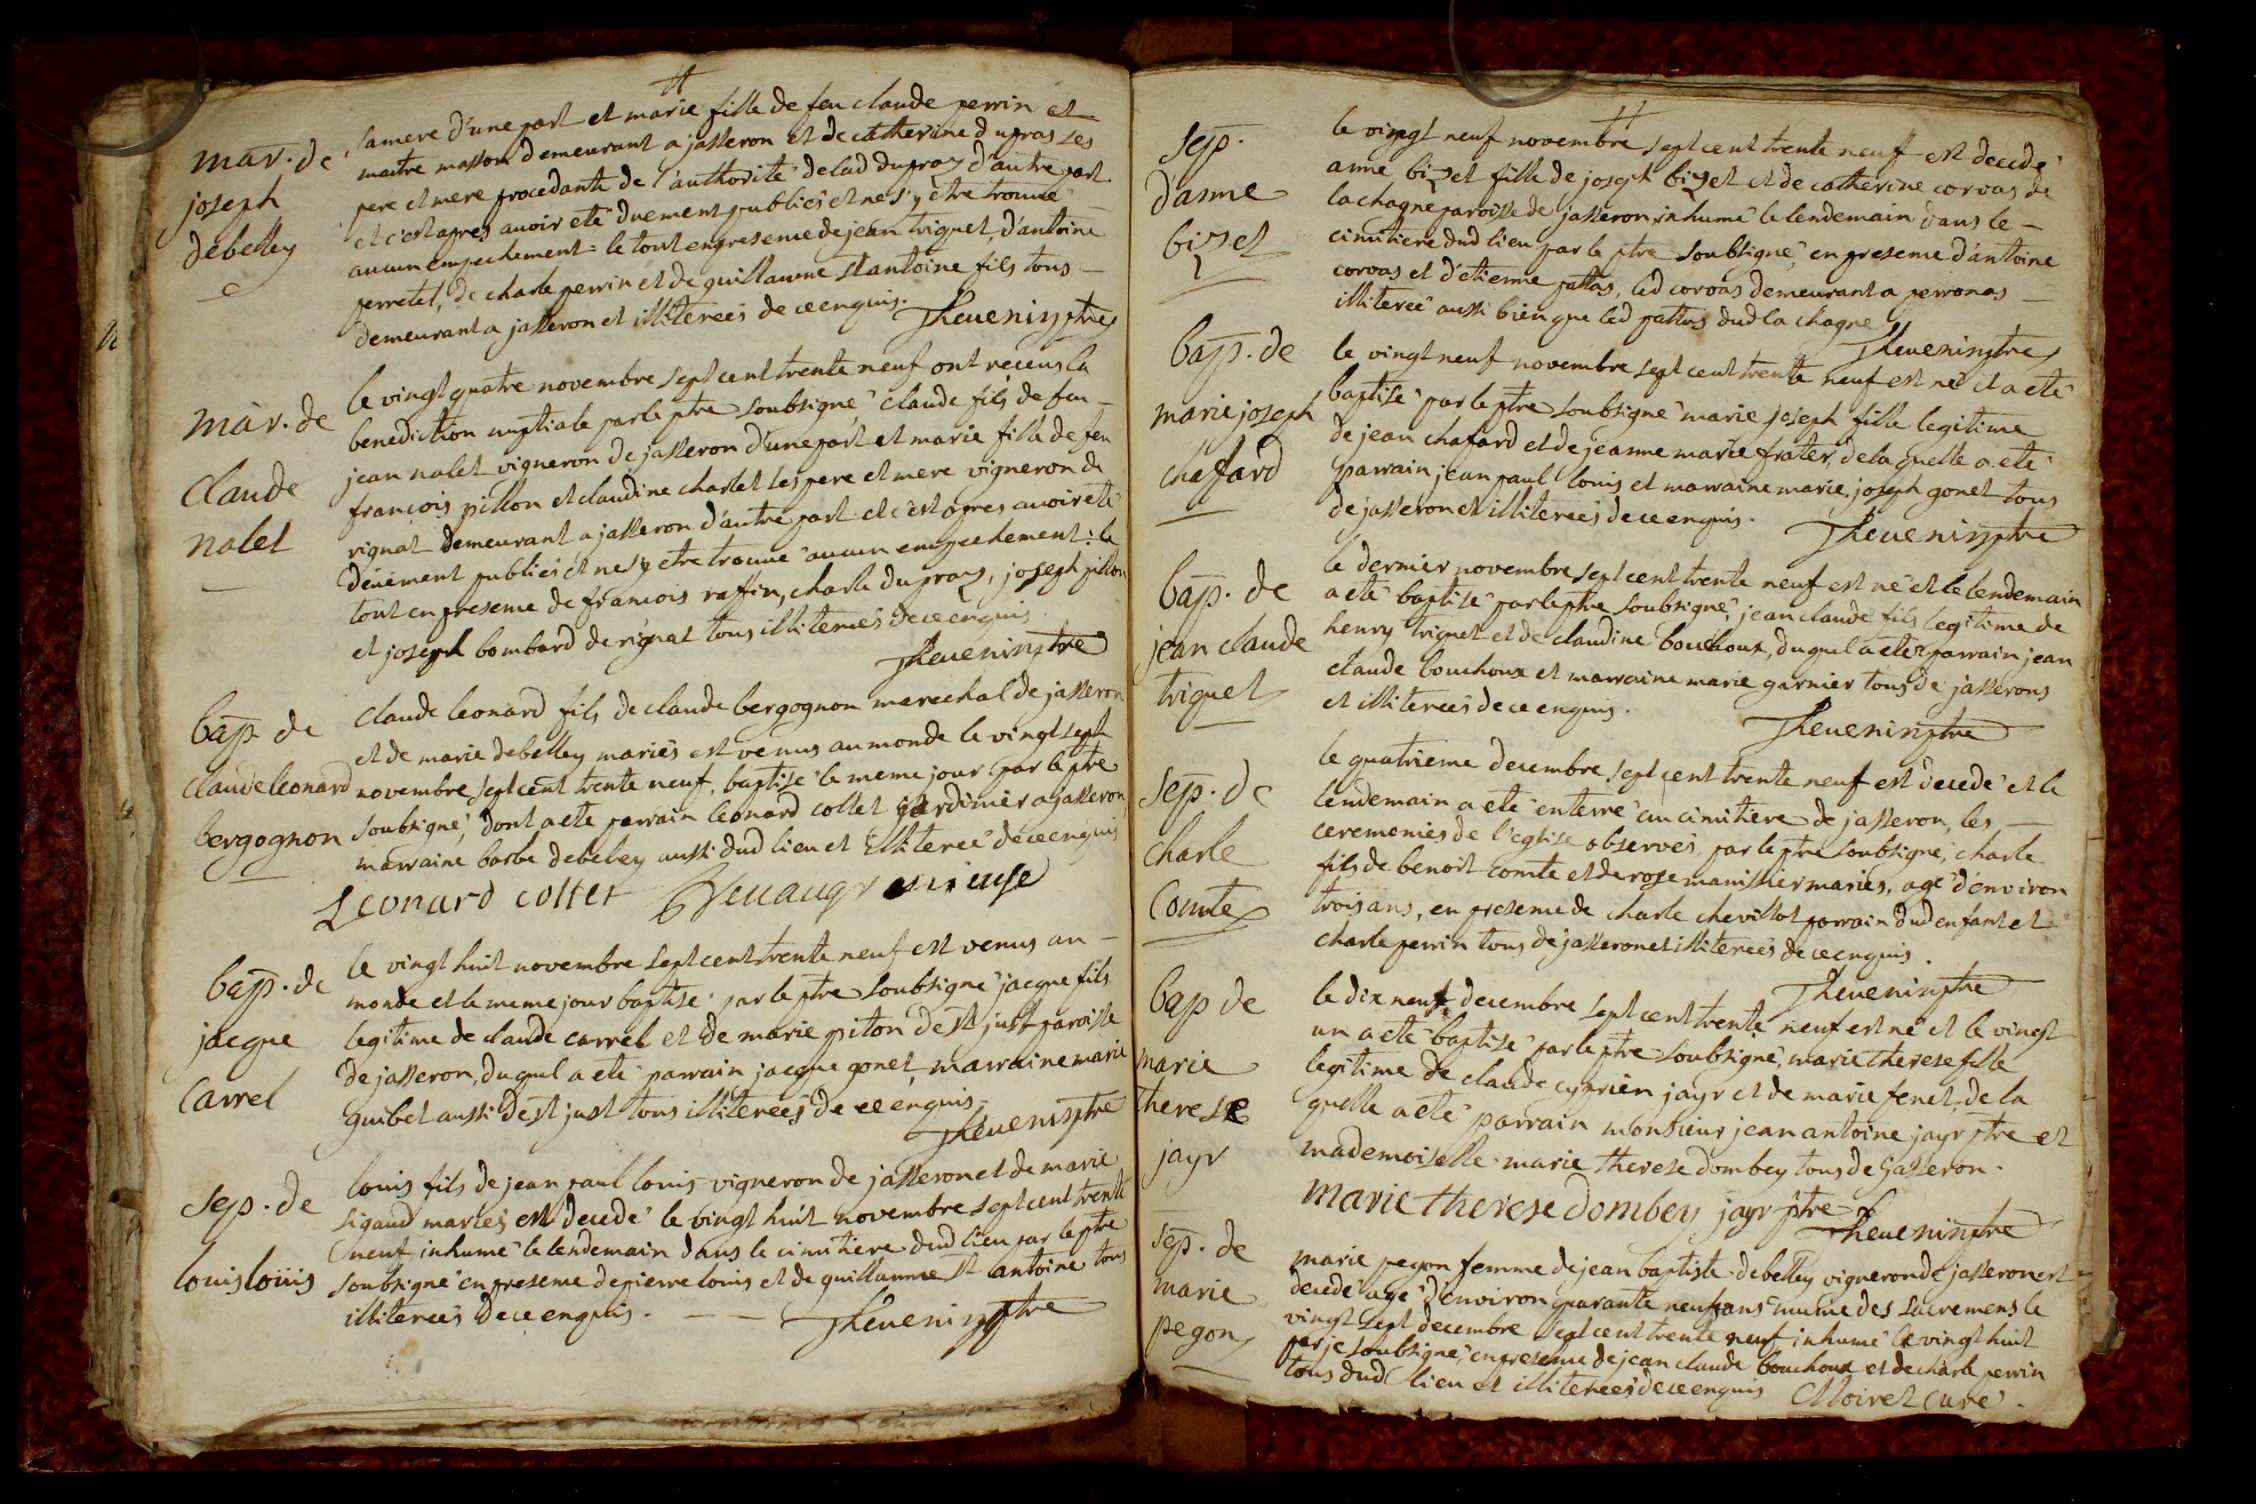 mar. de
joseph
debelley
sa mere d'une part et marie fille de feu claude perrin et
maitre masson demeurant a jasseron et de catherine dupras ses
pere et mere procedante de l'authorité de lad dupraz d'autre part
et c'est apres avoir eté duement publiés et ne s'y etre trouvé
aucun empechement = le tout en presence de jean triquet, d'antoine
perretet, de charle perrin et de guillaume st antoine fils tous
demeurant a jasseron et illiterés de ce enquis. Thevenin ptre
mar. de
claude
nalet
le vingt quatre novembre sept cent trente neuf ont receus la
benediction nuptiale par le ptre soubsigné, claude fils de feu
jean nalet vigneron de jasseron d'une part et marie fille de feu
françois pillon et claudine charlet ses pere et mere vigneron de
rignat demeurant a jasseron d'autre part et c'est apres avoir eté
deüement publiés et ne s'y etre trouvé aucun empechement : le
tout en presence de francois raffin, charle dupraz, joseph pillon
et joseph bombard de rignat tous illiterés de ce enquis.
Thevenin ptre
bap de
claude leonard
bergognon
claude leonard fils de claude bergognon marechal de jasseron
et de marie debelley mariés est venus au monde le vingt sept
novembre sept cent trente neuf, baptisé le meme jour par le ptre
soubsigné, dont a eté parrain leonard collet jardinier a jasseron,
marraine barbe debeley aussi dud lieu et illiterée de ce enquis
Leonard collet
bap. de
jacque
carrel
le vingt huit novembre sept cent trente neuf est venus au
monde et le meme jour baptisé par le ptre soubsigné jacque fils
legitime de claude carrel et de marie piton de st just paroisse
de jasseron, duquel a eté parrain jacque gonet, marraine marie
guibet aussi de st just tous illiterés de ce enquis.
Thevenin ptre
sep. de
louis loüis
louis fils de jean paul louis vigneron de jasseron et de marie
sigaud mariés est decedé le vingt huit novembre sept cent trente
neuf inhumé le lendemain dans le cimitiere dud lieu par le ptre
soubsigné en presence de pierre louis et de guillaume st antoine tous
illiterés de ce enquis. Thevenin ptre
sep.
d'anne
bizet
le vingt neuf novembre sept cent trente neuf est decedé
anne bizet fille de joseph bizet et de catherine corvas de
la chagne paroisse de jasseron inhumé le lendemain dans le
cimitiere dud lieu par le ptre soubsigné, en presence d'antoine
corvas et d'etienne pattas, led corvas demeurant a perronas
illiteré aussi bien que led pattas dud la chagne
Thevenin ptre
bap. de
marie joseph
chafard
le vingt neuf novembre sept cent trente neuf est né et a eté
baptisé par le ptre soubsigné marie joseph fille legitime
de jean chafard et de jeanne marie frater, de laquelle a eté
parrain jean paul louis et marraine marie joseph gonet tous
de jasseron et illiterés de ce enquis.
Thevenin ptre
bap. de
jean claude
triquet
le dernier novembre sept cent trente neuf est né et le lendemain
a eté baptisé par le ptre soubsigné, jean claude fils legitime de
henry triquet et de claudine bouchoux, duquel a eté parrain jean
claude bouchoux et marraine marie garnier tous de jasserons
et illiterés de ce enquis.
Thevenin ptre
sep. de
charle
Comte
le quatrieme decembre sept cent trente neuf est decedé et le
lendemain a eté enterré au cimitiere de jasseron, les
ceremonies de l'eglise observés, par le ptre soubsigné, charle
fils de benoit comte et de rose manissier mariés, agé d'environ
trois ans, en presence de charle chevillot parrain dud enfant et
charle perrin tous de jasseron et illiterés de ce enquis.
Thevenin ptre
bap de
marie
therese
jayr
le dix neuf decembre sept cent trente neuf est né et le vingt
un a eté baptisé par le ptre soubsigné, marie therese fille
legitime de claude cyprien jayr et de marie fenet, de la
quelle a eté parrain monsieur jean antoine jayr ptre et
mademoiselle marie therese dombey tous de jasseron.
marie therese dombey jayr ptre
Thevenin ptre
sep. de
marie
pegon
marie pegon femme de jean baptiste debelley vigneron de jasseron est
decedé agé d'environ quarante neuf ans munie des sacremens le
vingt sept decembre sept cent trente neuf inhumé le vingt huit
par je soubsigné, en presence de jean claude bouchoux et de charle perrin
tous dud lieu et illiterés de ce enquis Moiret curé.